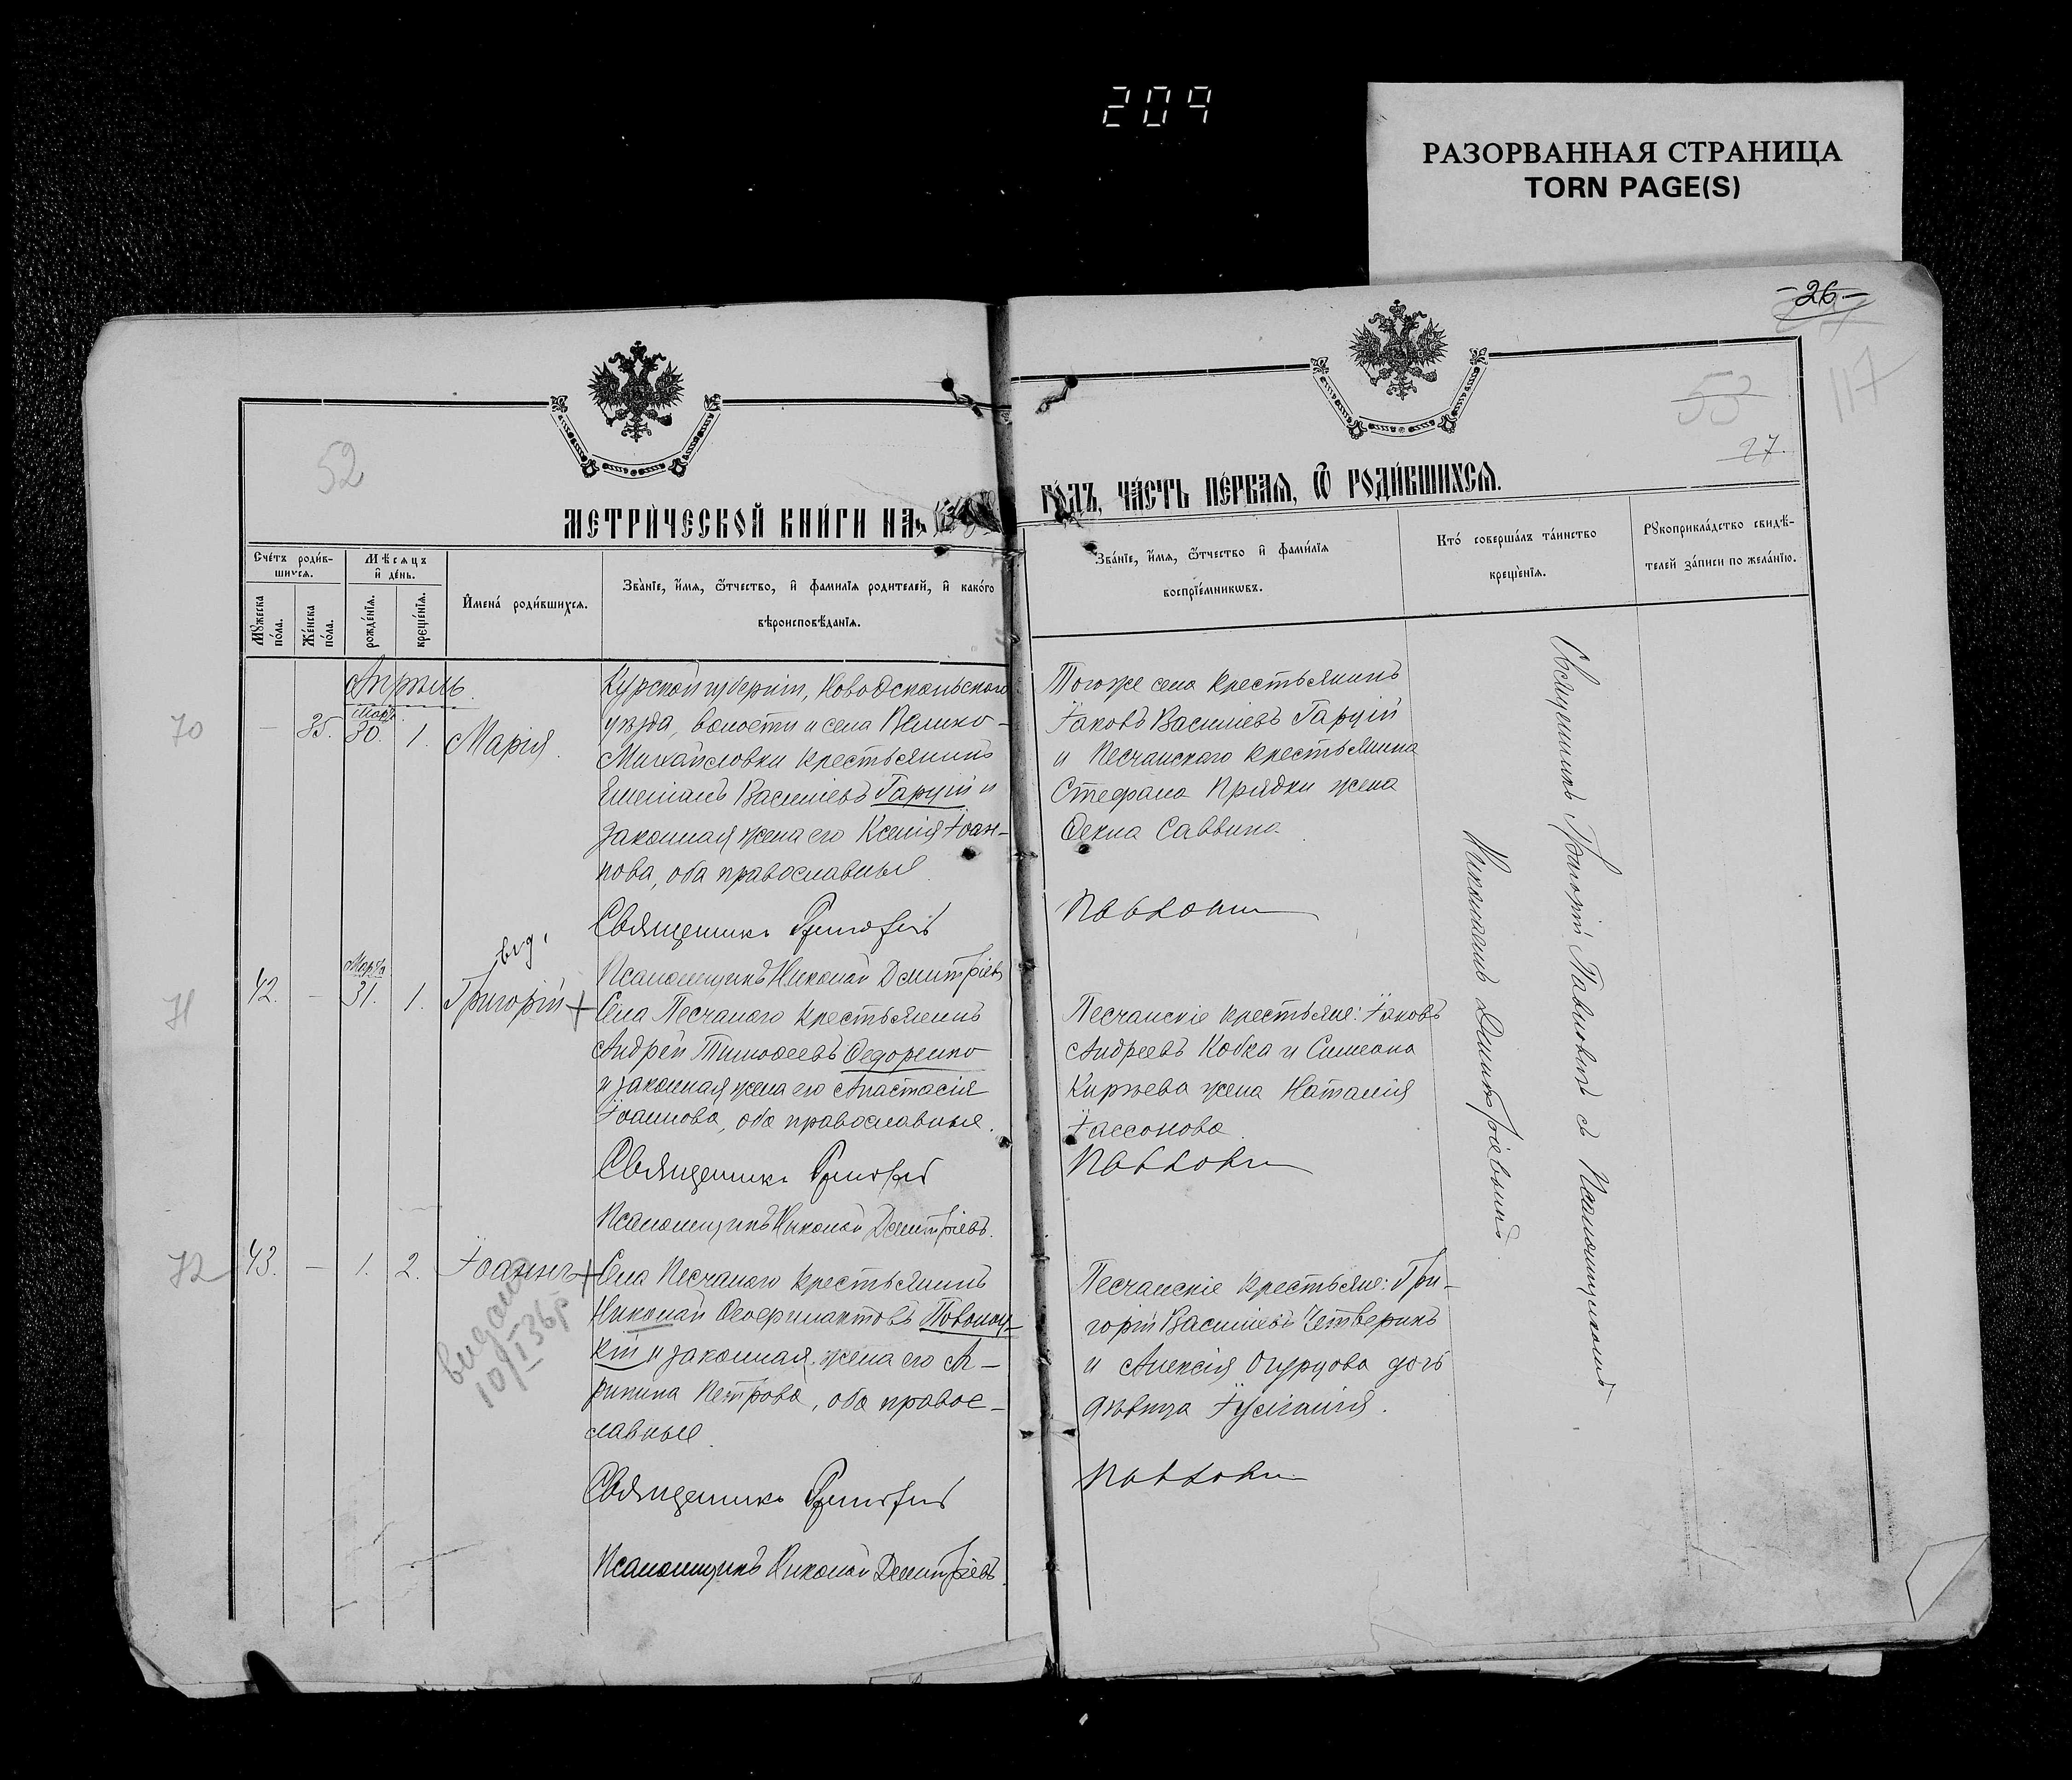 209
РАЗОРВАННАЯ СТРАНИЦА
TORN PAGE(S)
-26-
117
53
27.
52
МЕТРИ́ЧЕСКОЙ КНИ́ГИ НА
ГО́ДЪ, ЧА́СТЬ ПЕ́РВАЯ, Ѿ РОДИ́ВШИХСЯ.
Сче́тъ роди́в-
шихся.
Мѣ́сяцъ
и҆ де́нь.
Мꙋ́жеска
по́ла.
Же́нска
по́ла.
рожде́нїя.
креще́нїя.
И҆мена́ роди́вшихся.
Зва́нїе, и҆́мя, ѻ҆́тчество, и҆ фами́лїя роди́телей, и҆ како́го
вѣроисповѣ́данїя.
Зва́нїе, и҆́мя, ѻ҆́тчество и҆ фами́лїя
воспрїе́мникѡвъ.
Кто́ соверша́лъ та́инство
креще́нїя.
Рꙋкоприкла́дство свидѣ́-
телей за́писи по жела́нїю.
Апрѣль.
70
—
35.
Март.
30.
1.
Марія.
Курской губерніи, Ново Оскольского
уѣзда, волости и села Велико-
Михайловки крестьянинъ
Емеліанъ Василіевъ Гарцій и
законная жена его Ксенія Іоан-
нова, оба православные.
Священникъ Григорій
Псаломщикъ Николай Димитріевъ
Тогоже села крестьянинъ
Іаковъ Василіевъ Гарцій
и Песчанского крестьянина
Стефана Прядки жена
Ѳекла Саввина.
Павловъ
71
42.
—
Марта
31.
1.
выд.
Григорій +
Села Песчаного крестьянинъ
Андрей Тимоѳеевъ Ѳедоренко
и законная жена его Анастасія
Іоаннова, оба православные.
Священникъ Григорій
Псаломщикъ Николай Димитріевъ.
Песчанскіе крестьяне: Іаковъ
Андреевъ Кобка и Симеона
Киръева жена Наталія
Іассонова.
Павловъ
72
43.
—
1.
2.
Іоаннъ +
выдана
10/I 36г
Села Песчаного крестьянинъ
Николай Ѳеофилактовъ Поволоц-
кій и законная жена его А-
грипина Петрова, оба правос-
лавные.
Священникъ Григорій
Псаломщикъ Николай Димитріевъ
Песчанскіе крестьяне: Гри-
горій Василіевъ Четверикъ
и Алексія Огурцова дочь
дѣвица Іуліанія.
Павловъ
Священникъ Григорій Павловъ съ Псаломщикомъ
Николаемъ Димитріевымъ.